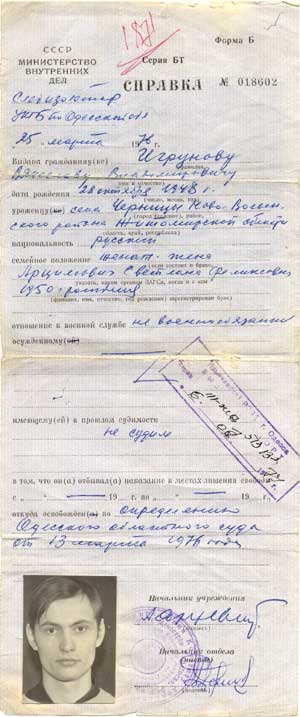 1871
Форма Б
СССР
МИНИСТЕРСТВО
ВНУТРЕННИХ
ДЕЛ
Серия БТ
СПРАВКА № 018602
Следизолятор
25 марта 1976
Выдана гражданину(ке) Игрунову
фамилия
Вячеславу Владимировичу
имя и отчество
дата рождения 28 октября 1948 г.
(число, месяц, год)
уроженцу(ке) села Черницы
район
района Житомирской области
область, край, республика
национальность русский
семейное положение женат. жена
Арцимович Светлана Феликсовна
указать, каким органом ЗАГСа, когда и с кем
1950 рождения
(фамилия, имя, отчество, год рождения) зарегистрирован брак
отношение к военной службе не военнообязанный
осужденному(ой)
г. Одесса
имеющему(ей) в прошлом судимости
не судим
в том, что он(а) отбывал(а) наказание в местах лишения свободы
с 19 г. по 19 г.
откуда освобожден(а) по определению
Одесского областного суда
от 13 марта 1976 года
Начальник учреждения
(подпись)
Начальник отдела
(части)
(подпись)